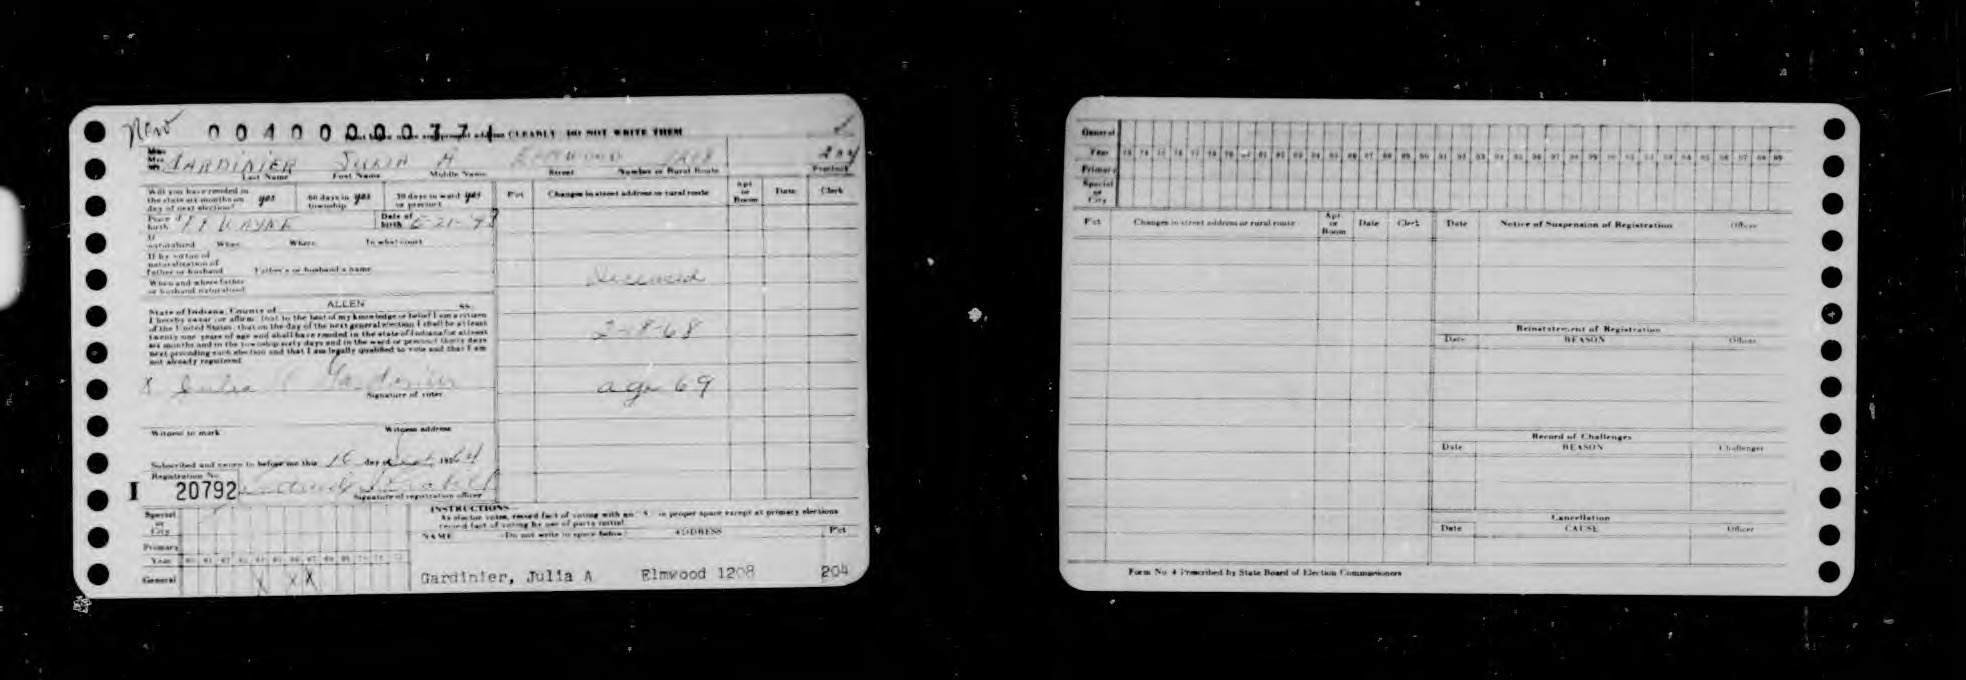 New 0040000771
Print below name and present address CLEARLY DO NOT WRITE THEM
Miss
Mrs
Mr GARDINIER JULIA A ELMWOOD 1208 204
Last Name First Name Middle Name Street Number or Rural Route Precinct
Will you have resided in the state six months on day of next election? yes 60 days in township yes 30 days in ward or precinct yes
Pct Changes in street address or rural route Apt or Room Date Clerk
Place of birth FT WAYNE Date of birth
If naturalized When Where In what court
If by virtue of naturalization of Father or husband Father's or husband's name
When and where father or husband naturalized
Deceased
2-18-68
age 69
State of Indiana, County of ALLEN SS:
I hereby swear (or affirm) that to the best of my knowledge or belief I am a citizen
of the United States; that on the day of the next general election I shall be at least
twenty one years of age and shall have resided in the state of Indiana for at least
six months and in the township sixty days and in the ward or precinct thirty days
next preceding such election and that I am legally qualified to vote and that I am
not already registered
X Julia Gardinier
Signature of voter
Witness to mark Witness address
Subscribed and sworn to before me this 16 day of 1964
Registration No.
I 20792
Signature of registration officer
Special or City
Primary
Year
General X X X
INSTRUCTIONS
As elector votes, record fact of voting with an "X" in proper space except at primary elections
record fact of voting by use of party initial
NAME (Do not write in space below) ADDRESS Pct
Gardinier, Julia A Elmwood 1208 204
General
Year 73 74 75 76 77 78 79 80 81 82 83 84 85 86 87 88 89 90 91 92 93 94 95 96 97 98 99 00 01 02 03 04 05 06 07 08 09
Primary
Special or City
Pct Changes in street address or rural route Apt or Room Date Clerk Date Notice of Suspension of Registration Officer
Reinstatement of Registration
Date REASON Officer
Record of Challenges
Date REASON Challenger
Cancellation
Date CAUSE Officer
Form No 4 Prescribed by State Board of Election Commissioners